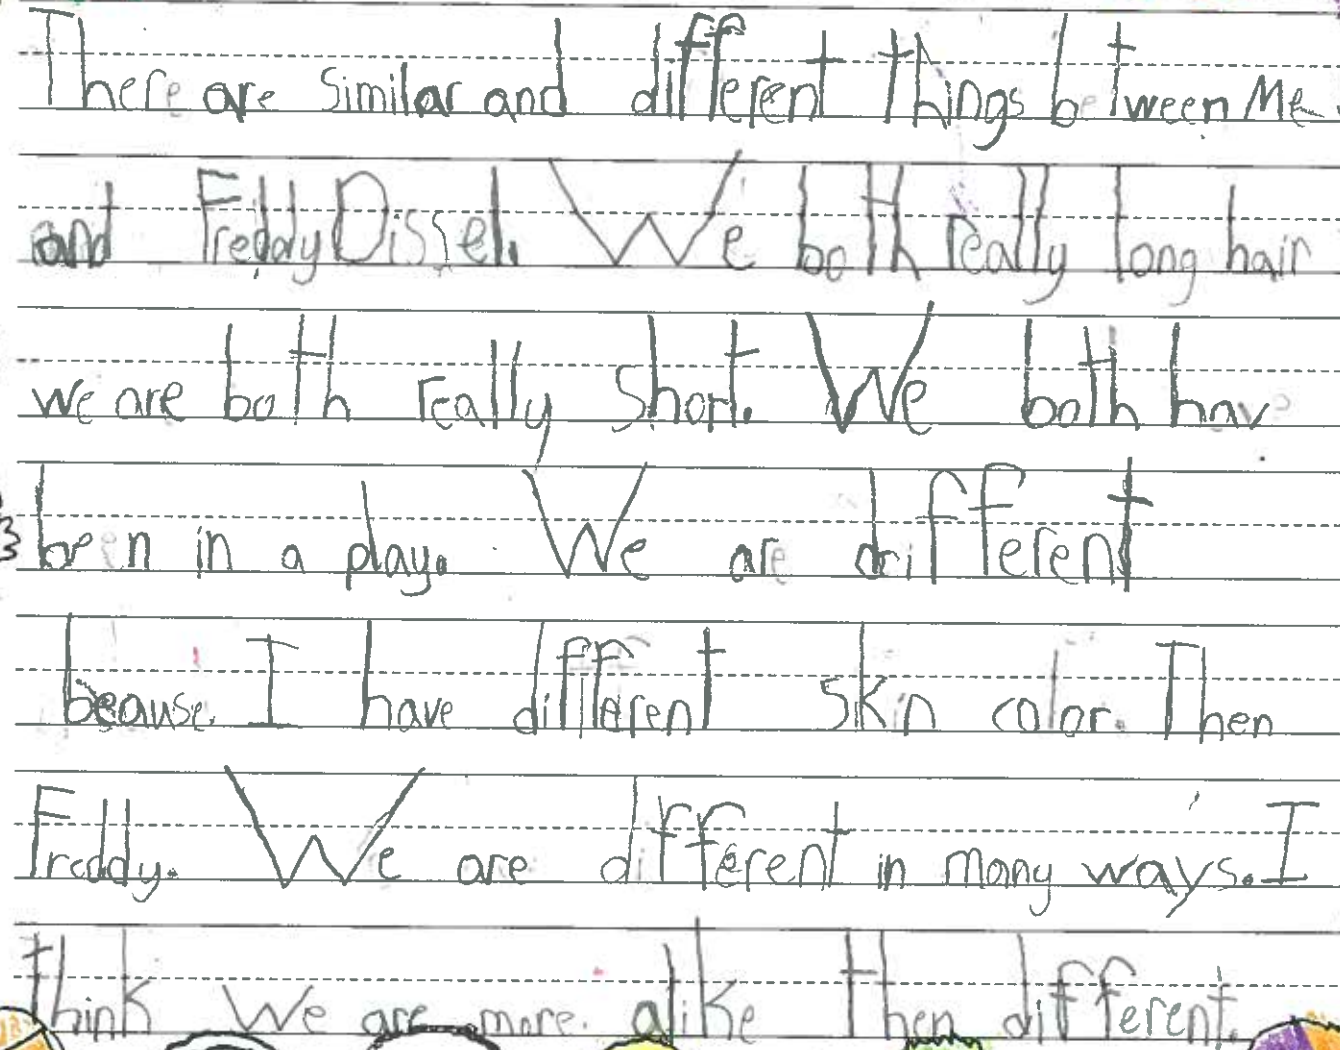 There are similar and different things between Me
and Freddy Dissel. We both really long hair
we are both really short. We both hav
been in a play. We are different
beause I have different skin color. Then
Freddy. We are different in many ways. I
think we are more alike then different.